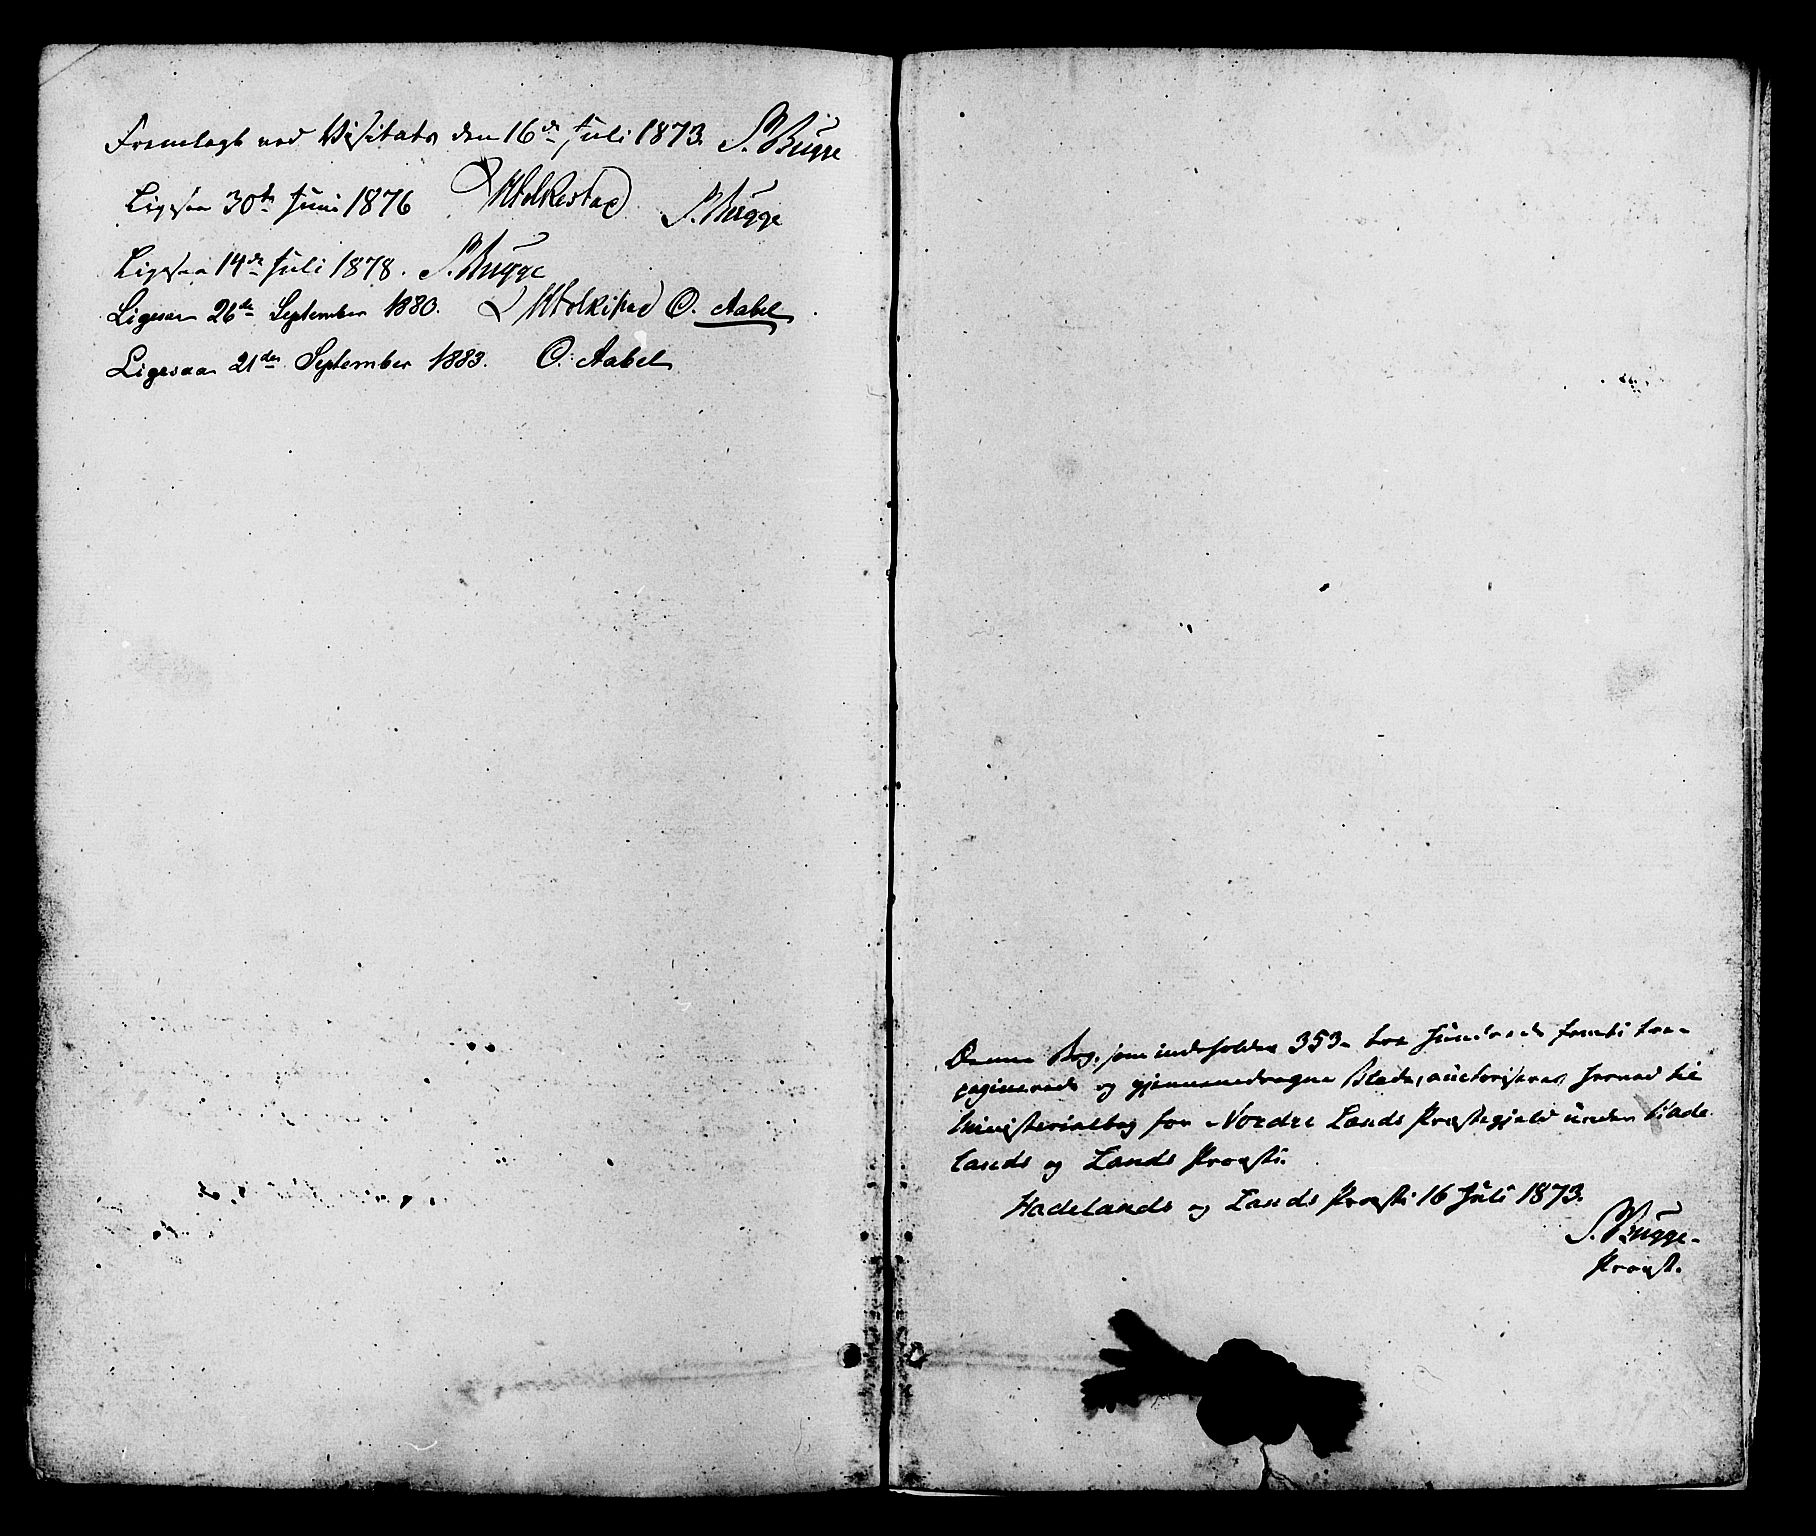 Fremlagt ved Visitats den 16de Juli 1873. S. Bugge
Ligesaa 30te Juni 1876 S. Bugge
Ligesaa 14de Juli 1878. S. Bugge
Ligesaa 26de September 1880. O. Aabel
Ligesaa 21de September 1883. O. Aabel
Denne Bog, som indeholder 353 – tre Hundrede femti tre –
paginerede og gjennemdragne Blade, auctoriseres herved til
Ministerialbog for Nordre Lands Præstegjeld under Hade
lands og Lands Provsti.
Hadelands og Lands Provsti 16 Juli 1873.
S. Bugge
Provst.